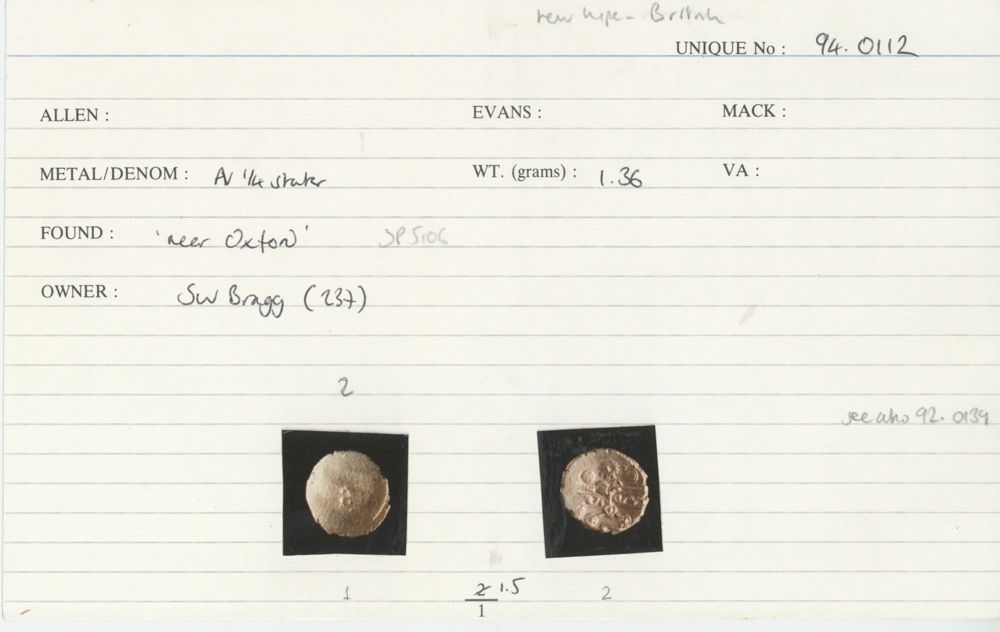 new type - British
UNIQUE No : 94.0112
ALLEN : EVANS : MACK :
METAL/DENOM : AV 1/4 stater WT. (grams) : 1.36 VA :
FOUND : 'near Oxford' SP5106
OWNER : SW Bragg (237)
2
see also 92.0139
1 2 1.5 2
1